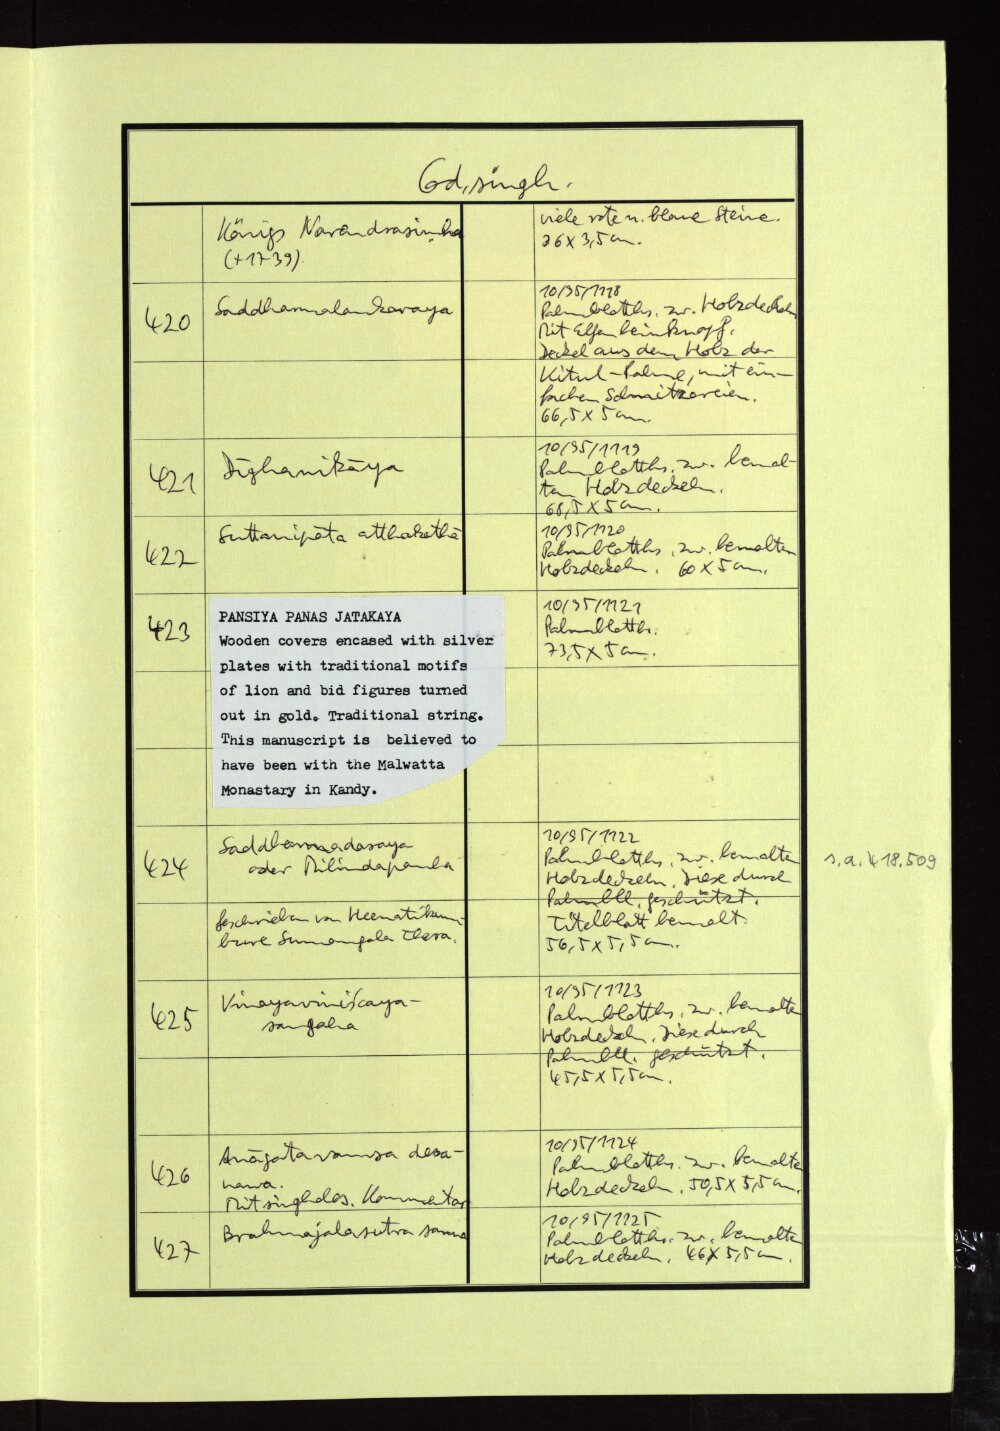 Cod. singh.
Königs Narendrasiṃha
(+1739)
viele rote u. blaue Steine.
26 x 3,5 cm.
420
Saddharmalankaraya
10/95/1118
Palmblatths. zw. Holzdeckeln
Mit Elfenbeinknopf.
Deckel aus dem Holz der
Kitul-Palme, mit ein-
fachen Schnitzereien.
66,5 x 5 cm.
421
Dīghanikāya
10/95/1119
Palmblatths. zw. bemal-
ten Holzdeckeln.
68,5 x 5 cm.
422
Suttanipāta atthakathā
10/95/1120
Palmblatths. zw. bemalten
Holzdeckeln. 60 x 5 cm.
423
PANSIYA PANAS JATAKAYA
Wooden covers encased with silver
plates with traditional motifs
of lion and bid figures turned
out in gold. Traditional string.
This manuscript is believed to
have been with the Malwatta
Monastary in Kandy.
10/95/1121
Palmblatths.
73,5 x 5 cm.
424
Saddharmadasaya
oder Milindapanha
geschrieben von Heenatikum-
bure Sumangala Thera.
10/95/1122
Palmblatths. zw. bemalten
Holzdeckeln. Diese durch
Palmbll. geschützt.
Titelblatt bemalt.
56,5 x 5,5 cm.
s.a. 418, 509
425
Vinayaviniścaya-
sangaha
10/95/1123
Palmblatths. zw. bemalten
Holzdeckeln. Diese durch
Palmbll. geschützt.
45,5 x 5,5 cm.
426
Anāgatavamsa desa-
nawa.
Mit singhales. Kommentar
10/95/1124
Palmblatths. zw. bemalten
Holzdeckeln. 50,5 x 5,5 cm.
427
Brahmajalasutra sanna
10/95/1125
Palmblatths. zw. bemalten
Holzdeckeln. 46 x 5,5 cm.